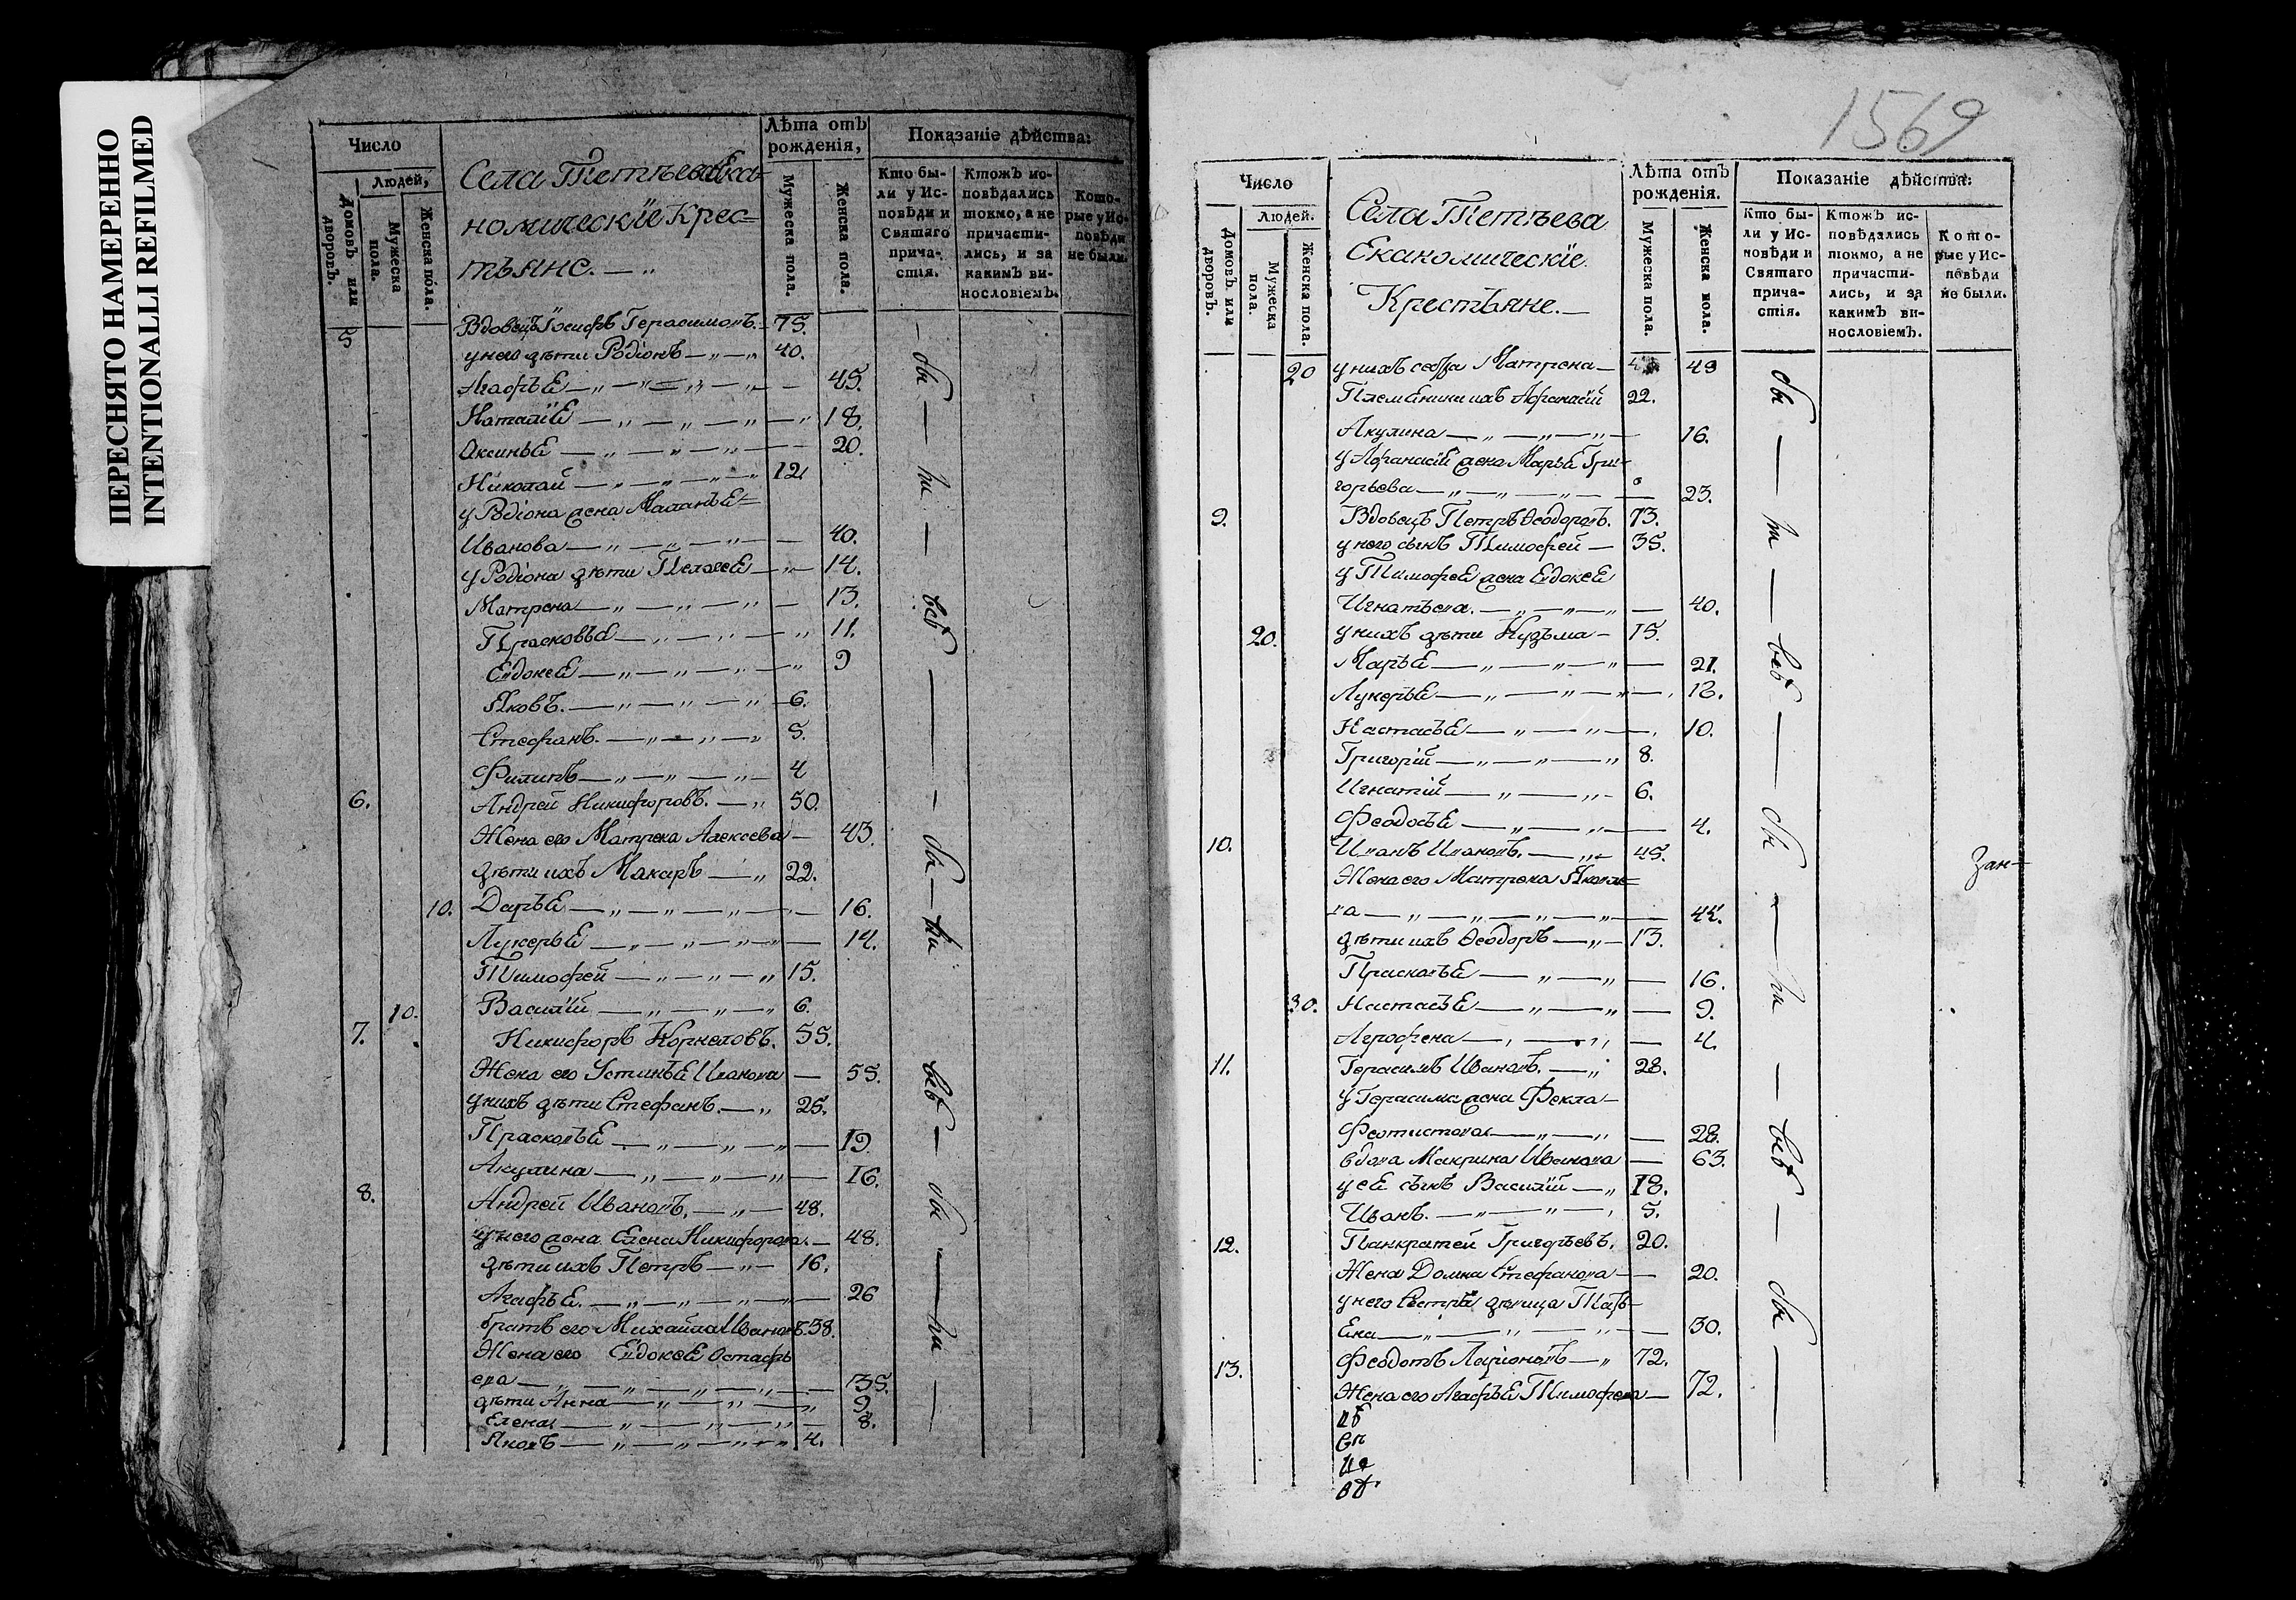 ПЕРЕСНЯТО НАМЕРЕННО
INTENTIONALLI REFILMED
Число
Людей,
Домовъ или дворовъ.
Мужеска пола.
Женска пола.
Села Тетъева Ека-
номическїе Крес=
тьяне.
Лѣта отъ рожденія,
Мужеска пола.
Женска пола.
Показаніе дѣйства:
Кто бы-
ли у Ис-
повѣди и
Святаго
прича-
стія.
Ктожъ ис-
повѣдались
токмо, а не
причасти-
лись, и за
какимъ ви-
нословіемъ.
Кото-
рые у Ис-
повѣди
не были.
5 Вдовецъ Іосифъ Герасимовъ. 75.
у него дѣти Родіонъ — „ — „ 40.
Агафья — „ — „ — „ — 45.
Наталїя — „ — „ — „ 18.
Аксинья — „ — „ — „ — 20.
Николай — „ — „ — „ 12
у Родіона жена Маланья=
Иванова — „ — „ — „ — 40.
у Родіона дѣти Пелагея — „ 14.
Матрена — „ — „ — „ — 13.
Прасковья — „ — „ — „ 11.
Евдокея — „ — „ — „ — „ 9
Яковъ. — „ — „ — „ 6.
Стефанъ. — „ — „ — „ 5.
Филипъ — „ — „ — „ — 4
6. Андрей Никифоровъ. — „ 50.
Жена его Матрена Алексеева — 43.
дѣти ихъ Макаръ — „ 22.
10. Дарья — „ — „ — „ — 16.
Лукерья — „ — „ — „ — 14.
Тимофей — „ — „ — „ 15.
10. Василїй — „ — „ — „ 6.
7. Никифоръ Корнеловъ. 55.
Жена его Устинья Иванова — 55.
у нихъ дѣти Стефанъ. — „ 25.
Прасковья — „ — „ — „ — 19.
Акулина — „ — „ — „ — 16.
8. Андрей Ивановъ. — „ — 48.
у него жена Елена Никифорова. — 48.
дѣти ихъ Петръ — „ — 16.
Агафья. — „ — „ — „ — 26
братъ его Михайла Ивановъ. 38.
Жена его Евдокея Остафь
ева — „ — „ — „ — „ — 35.
дѣти Анна — „ — „ — „ 9.
Елена — „ — „ — „ — 8.
Яковъ — „ — „ — „ 4.
— бы — ли — всѣ —
— бы — ли
всѣ — бы — ли —
1569
Число
Людей.
Домовъ или дворовъ.
Мужеска пола.
Женска пола.
Села Тетъева
Екакомическїе
Крестьяне. —
Лѣта отъ рожденія.
Мужеска пола.
Женска пола.
Показаніе дѣйства:
Кто бы-
ли у Ис-
повѣди и
Святаго
прича-
стія.
Ктожъ ис-
повѣдались
токмо, а не
причасти-
лись, и за
какимъ ви-
нословіемъ.
Кото-
рые у Ис-
повѣди
не были.
20 у нихъ сестра Матрена — 49
Племянники ихъ Афанасїй 22.
Акулина — „ — „ — „ — 16.
у Афанасїя жена Марья Гри-
горьева — „ — „ — „ — 23.
9. Вдовецъ Петръ Ѳеодоровъ. 73.
у него сынъ Тимофей — 35.
у Тимофея жена Евдокея
Игнатьева. — „ — „ — „ — 40.
20. у нихъ дѣти Кузьма — 15.
Марья — „ — „ — „ — 21.
Лукерья — „ — „ — „ — 12.
Настасья — „ — „ — 10.
Григорїй — „ — „ — „ 8.
Игнатїй — „ — „ — 6.
Феодосья — „ — „ — 4.
10. Иванъ Ивановъ. — „ — 45.
Жена его Матрена Яковле=
ва — „ — „ — „ — „ — 44.
дѣти ихъ Ѳеодоръ — „ — 13.
Прасковья — „ — „ — 16.
30. Настасья — „ — „ — 9.
Агрофена — „ — „ — 4.
11. Герасимъ Ивановъ. — „ 28.
у Герасима жена Фекла —
Феотистова — „ — „ — 28.
вдова Макрина Иванова — 63.
у ея сынъ Василїй — „ 18.
Иванъ. — „ — „ — „ 5.
12. Панкратей Григорьевъ. 20.
Жена Домна Стефанова — 20.
у него сестра дѣвица Тать-
яна — „ — „ — „ — 30.
13. Феодотъ Ларіоновъ — „ 72.
Жена его Агафья Тимофева — 72.
бы — ли — всѣ —
бы — ли — всѣ —
бы —
Зан-